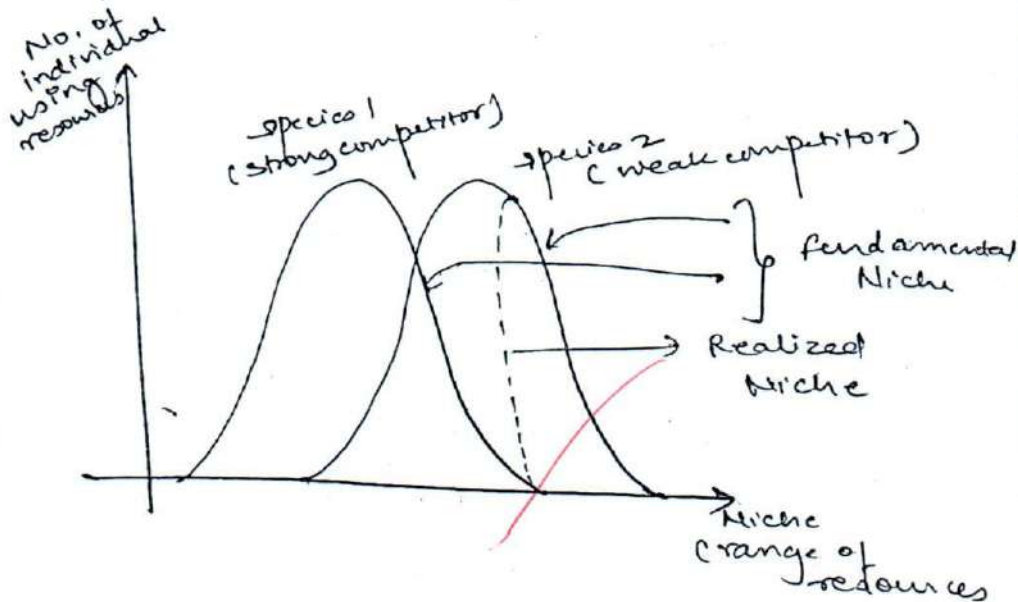 No. of
individual
using
resources
species 1
(strong competitor)
species 2
(weak competitor)
fundamental
Niche
Realized
Niche
Niche
(range of
resources